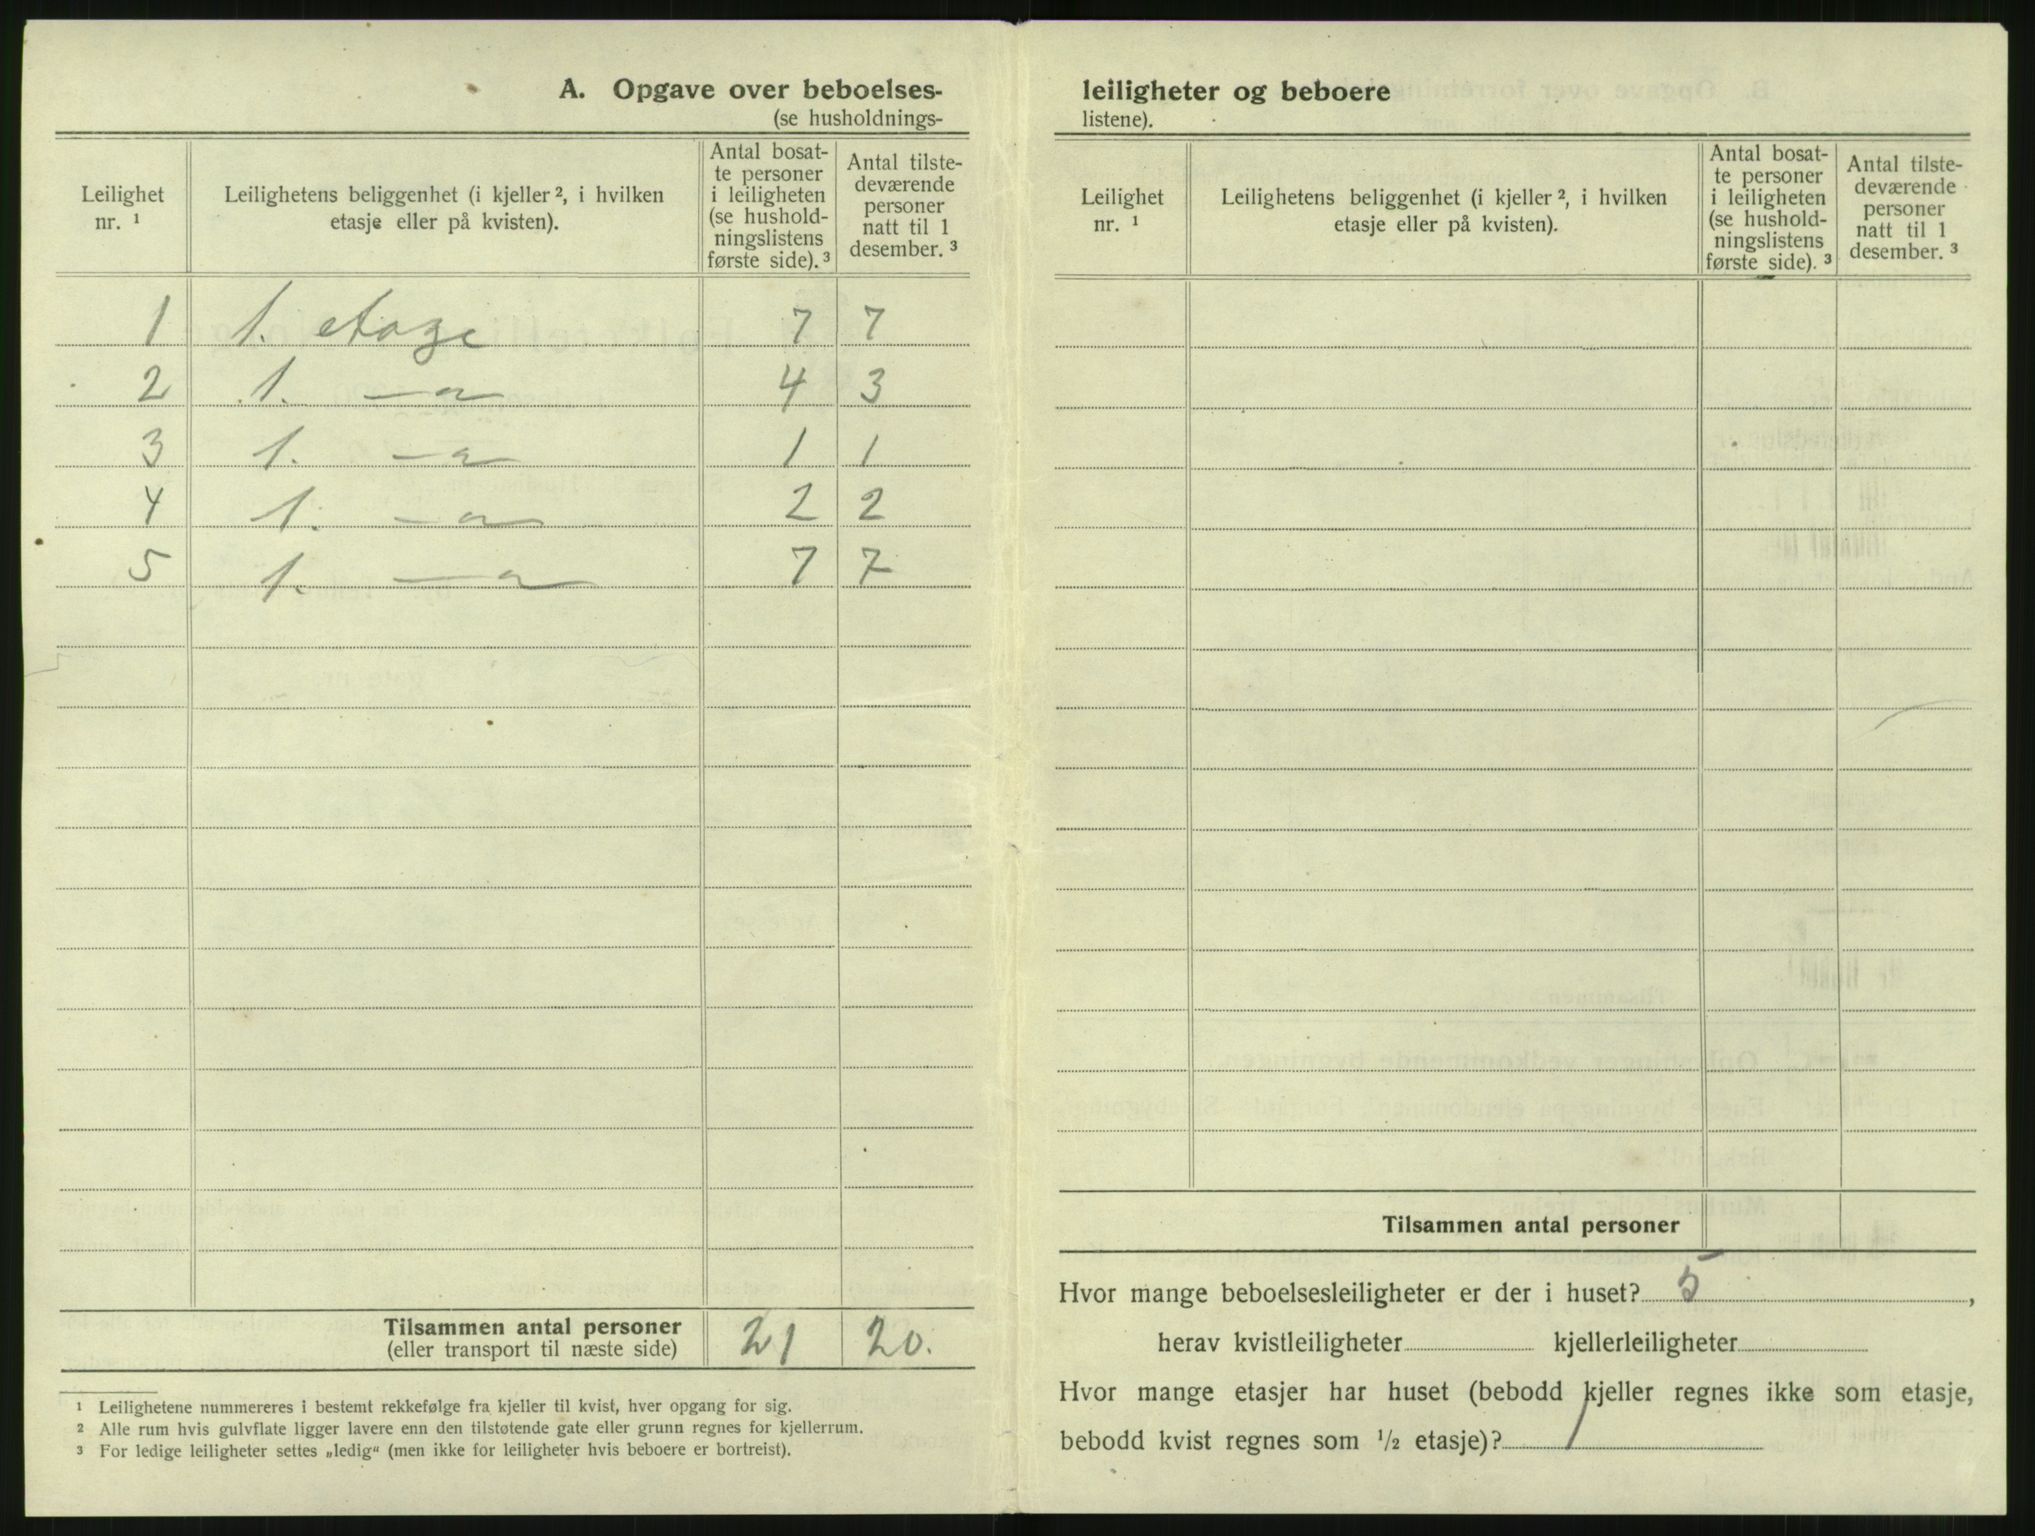 A. Opgave over beboelses-
(se husholdnings-
Leilighet
nr. ¹
Leilighetens beliggenhet (i kjeller ², i hvilken
etasje eller på kvisten).
Antal bosat-
te personer
i leiligheten
(se hushold-
ningslistens
første side). ³
Antal tilste-
deværende
personer
natt til 1
desember. ³
1 1. etage 7 7
2 1. —"— 4 3
3 1. —"— 1 1
4 1. —"— 2 2
5 1. —"— 7 7
Tilsammen antal personer
(eller transport til næste side)
21 20.
¹ Leilighetene nummereres i bestemt rekkefølge fra kjeller til kvist, hver opgang for sig.
² Alle rum hvis gulvflate ligger lavere enn den tilstøtende gate eller grunn regnes for kjellerrum.
³ For ledige leiligheter settes „ledig“ (men ikke for leiligheter hvis beboere er bortreist).
leiligheter og beboere
listene).
Leilighet
nr. ¹
Leilighetens beliggenhet (i kjeller ², i hvilken
etasje eller på kvisten).
Antal bosat-
te personer
i leiligheten
(se hushold-
ningslistens
første side). ³
Antal tilste-
deværende
personer
natt til 1
desember. ³
Tilsammen antal personer
Hvor mange beboelsesleiligheter er der i huset? 5,
herav kvistleiligheter kjellerleiligheter
Hvor mange etasjer har huset (bebodd kjeller regnes ikke som etasje,
bebodd kvist regnes som ½ etasje)? 1